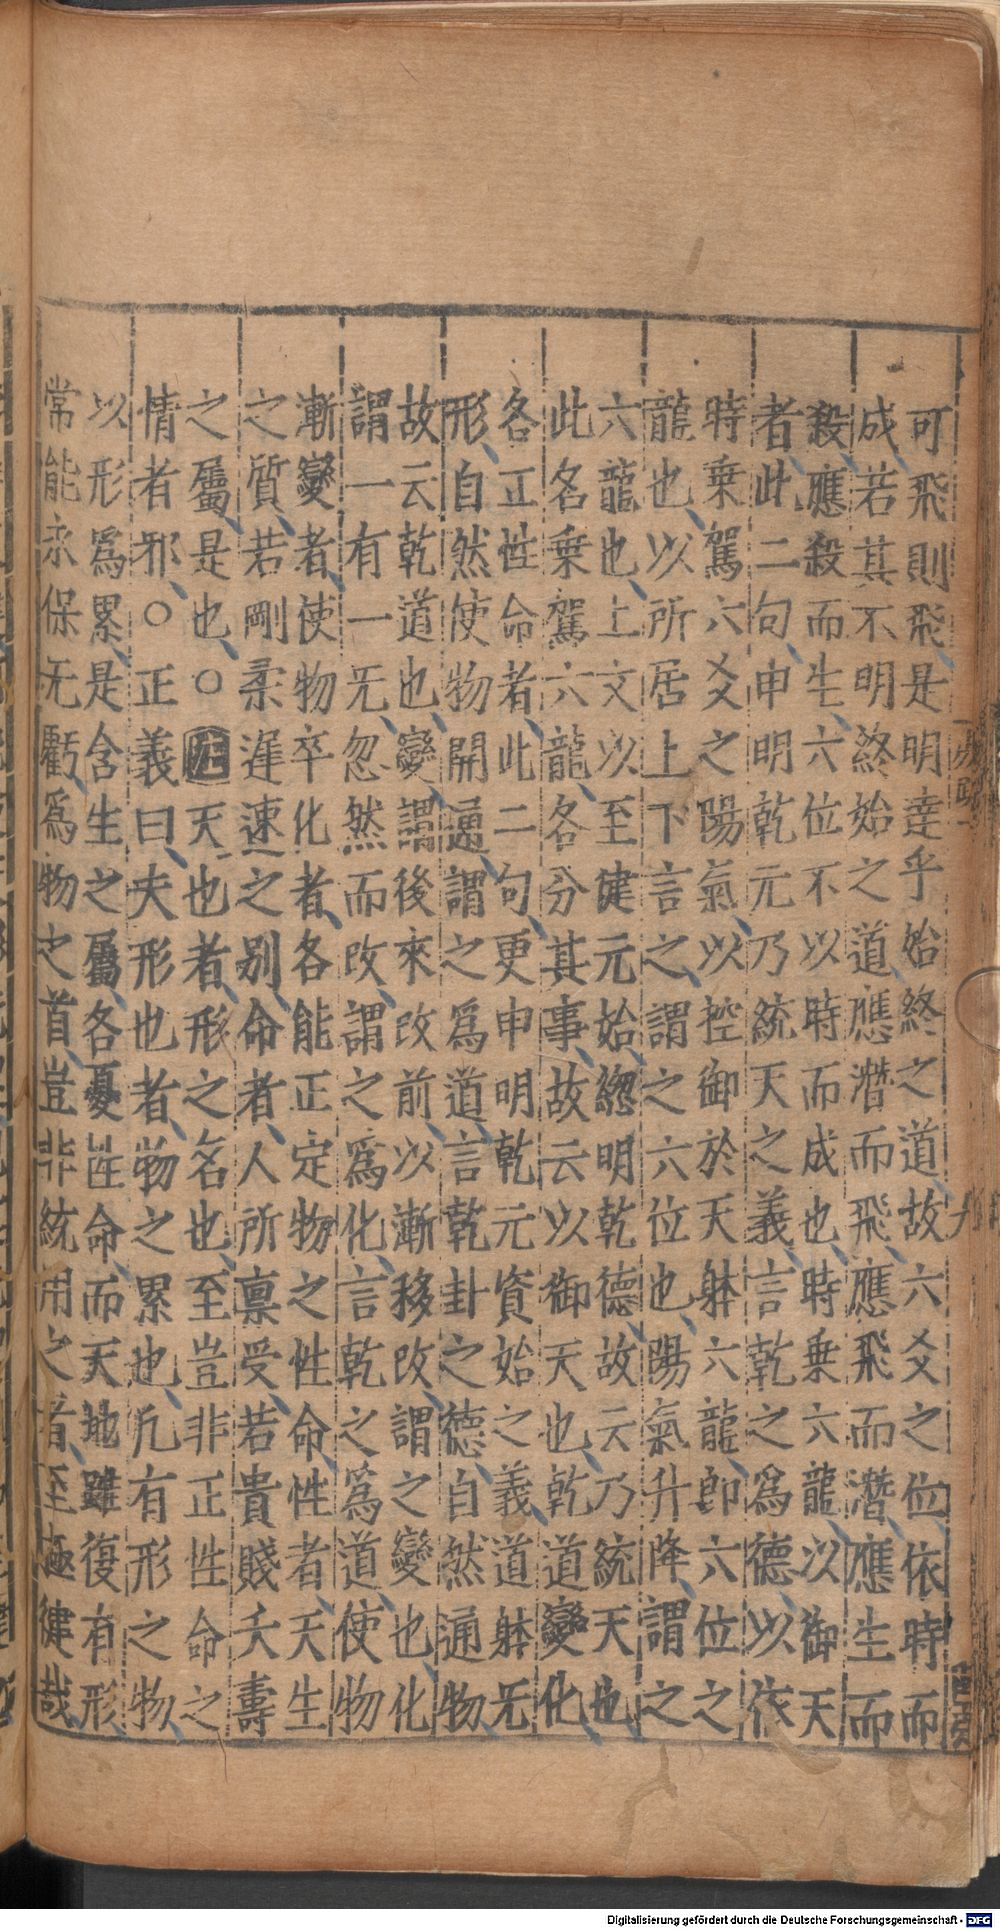 可飛則飛是明達乎始終之道故六爻之位依時而
成若其不明終始之道應潛而飛應飛而潛應生而
殺應殺而生六位不以時而成也時乗六龍以御天
者此二句申明乾元乃統天之義言乾之爲德以依
時乗駕六爻之陽氣以控御於天躰六龍即六位之
龍也以所居上下言之謂之六位也陽氣升降謂之
六龍也上文以至健元始緫明乾德故云乃統天也
此名乗駕六龍各分其事故云以御天也乾道變化
各正性命者此二句更申明乾元資始之義道躰无
形自然使物開通謂之爲道言乾卦之德自然通物
故云乾道也變謂後來改前以漸移改謂之變也化
謂一有一无忽然而改謂之爲化言乾之爲道使物
漸變者使物卒化者各能正定物之性命性者天生
之質若剛柔遲速之别命者人所禀受若貴賤夭壽
之屬是也○天也者形之名也至豈非正性命之
情者邪○正義曰夫形也者物之累也凡有形之物
以形爲累是含生之屬各憂性命而天地雖復有形
常能永保无虧爲物之首豈非統用之者至極健哉
Digitalisierung gefördert durch die Deutsche Forschungsgemeinschaft - DFG